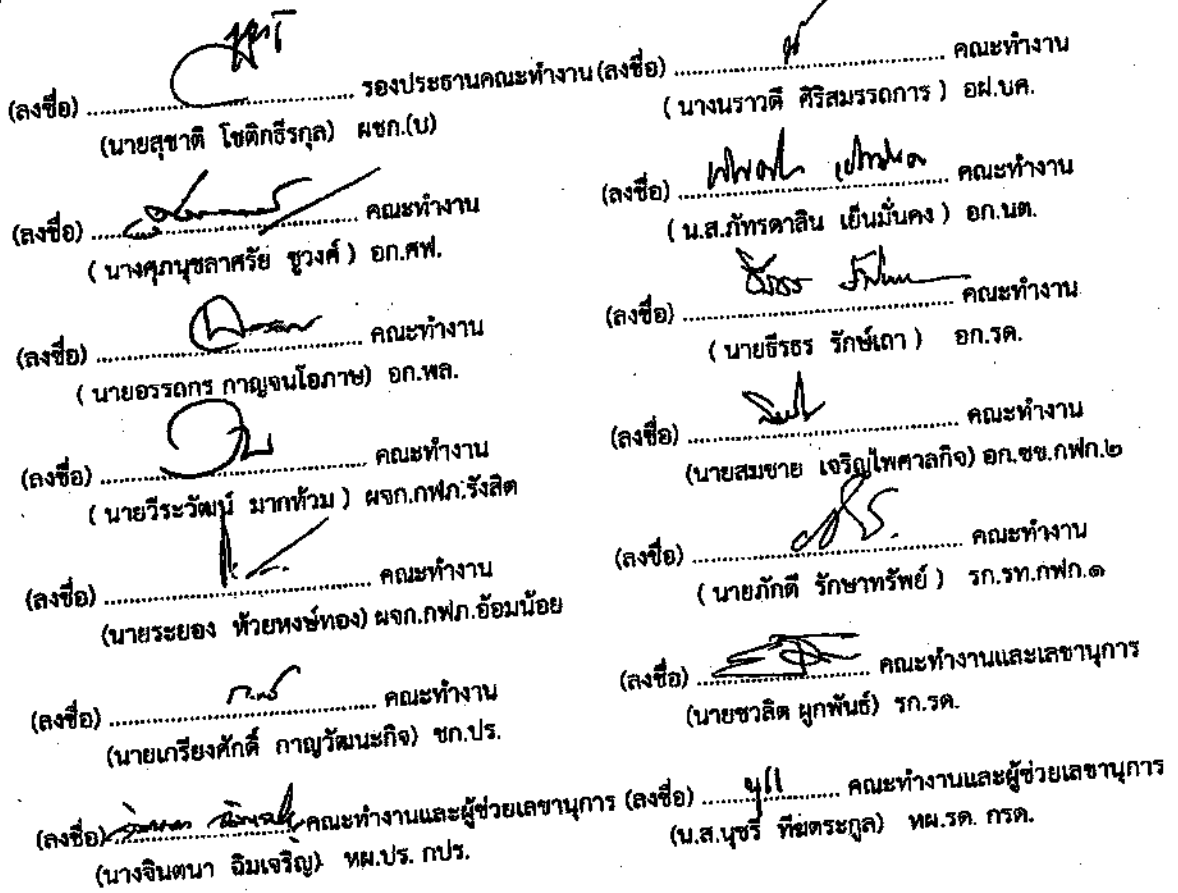 (ลงชื่อ) ........................ รองประธานคณะทำงาน
(นายสุชาติ โชติกธีรกุล) ผชก.(บ)
(ลงชื่อ) ........................ คณะทำงาน
( นางศุภนุชลาศรัย ชูวงศ์ ) อก.ศฟ.
(ลงชื่อ) ........................ คณะทำงาน
( นายอรรถกร กาญจนโอภาษ) อก.พล.
(ลงชื่อ) ........................ คณะทำงาน
( นายวีระวัฒน์ มากท้วม ) ผจก.กฟภ.รังสิต
(ลงชื่อ) ........................ คณะทำงาน
(นายระยอง ห้วยหงษ์ทอง) ผจก.กฟภ.อ้อมน้อย
(ลงชื่อ) ........................ คณะทำงาน
(นายเกรียงศักดิ์ กาญวัฒนะกิจ) ชก.ปร.
(ลงชื่อ) ........................ คณะทำงานและผู้ช่วยเลขานุการ
(นางจินตนา ฉิมเจริญ) หผ.ปร. กปร.
(ลงชื่อ) ........................ คณะทำงาน
( นางนราวดี ศิริสมรรถการ ) อฝ.บค.
(ลงชื่อ) ........................ คณะทำงาน
( น.ส.ภัทรดาลิน เย็นมั่นคง ) อก.นต.
(ลงชื่อ) ธีรธร ........................ คณะทำงาน
( นายธีรธร รักษ์เถา ) อก.รด.
(ลงชื่อ) ........................ คณะทำงาน
(นายสมชาย เจริญไพศาลกิจ) อก.ซข.กฟก.๒
(ลงชื่อ) ........................ คณะทำงาน
( นายภักดี รักษาทรัพย์ ) รก.รท.กฟก.๑
(ลงชื่อ) ........................ คณะทำงานและเลขานุการ
(นายชวลิต ผูกพันธ์) รก.รด.
(ลงชื่อ) ........................ คณะทำงานและผู้ช่วยเลขานุการ
(น.ส.นุชรี ทีฆตระกูล) หผ.รด. กรด.